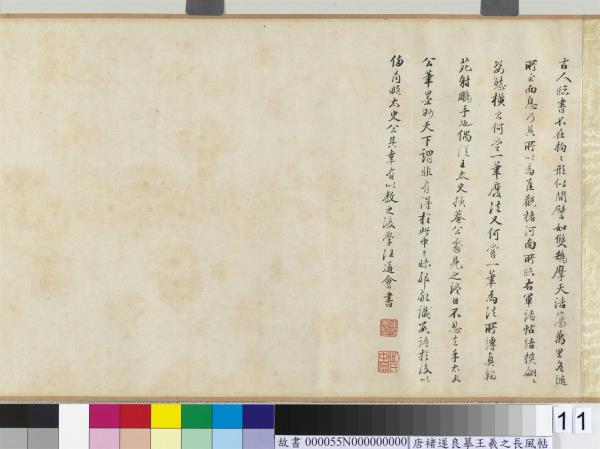 古人臨書不在拘拘形似間譬如雙鵝摩天浩蕩萬里各隨
所至而息乃其所以為佳觀褚河南所臨右軍諸帖結構翩翩
姿態橫出何嘗一筆廢法又何嘗一筆為法所縛真翰
苑射鵰手也偶從王太史損菴公處見之終日不忍去手太史
公筆墨妙天下謂非有得於此中三昧耶敢識數語於後以
備前
太史公其幸有以教之後學汪道會書
故書 000055N000000000
唐褚遂良摹王羲之長風帖
11